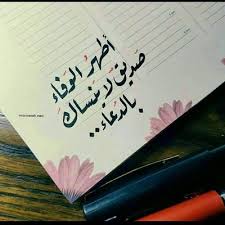 أطهرُ الوَفاء
صَديق لا يَنْساك
بالدعَاء..